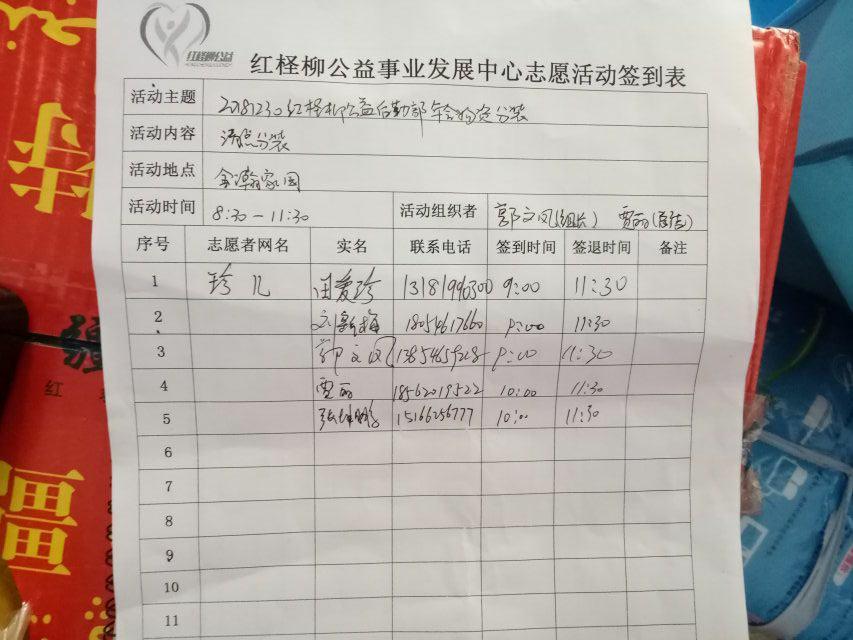 红柽柳公益
红柽柳公益事业发展中心志愿活动签到表
活动主题 20181230红柽柳公益后勤部年会物资分装
活动内容 清点分装
活动地点 金瀚家园
活动时间 8:30-11:30 活动组织者 郭文凤(组长) 贾丽(宣传)
序号 志愿者网名 实名 联系电话 签到时间 签退时间 备注
1 珍儿 田爱珍 13181996300 9:00 11:30
2 刘新梅 18054617660 9:00 11:30
3 郭文凤 13854659228 9:00 11:30
4 贾丽 18562019522 10:00 11:30
5 15166256777 10:00 11:30
6
7
8
9
10
11
红
疆